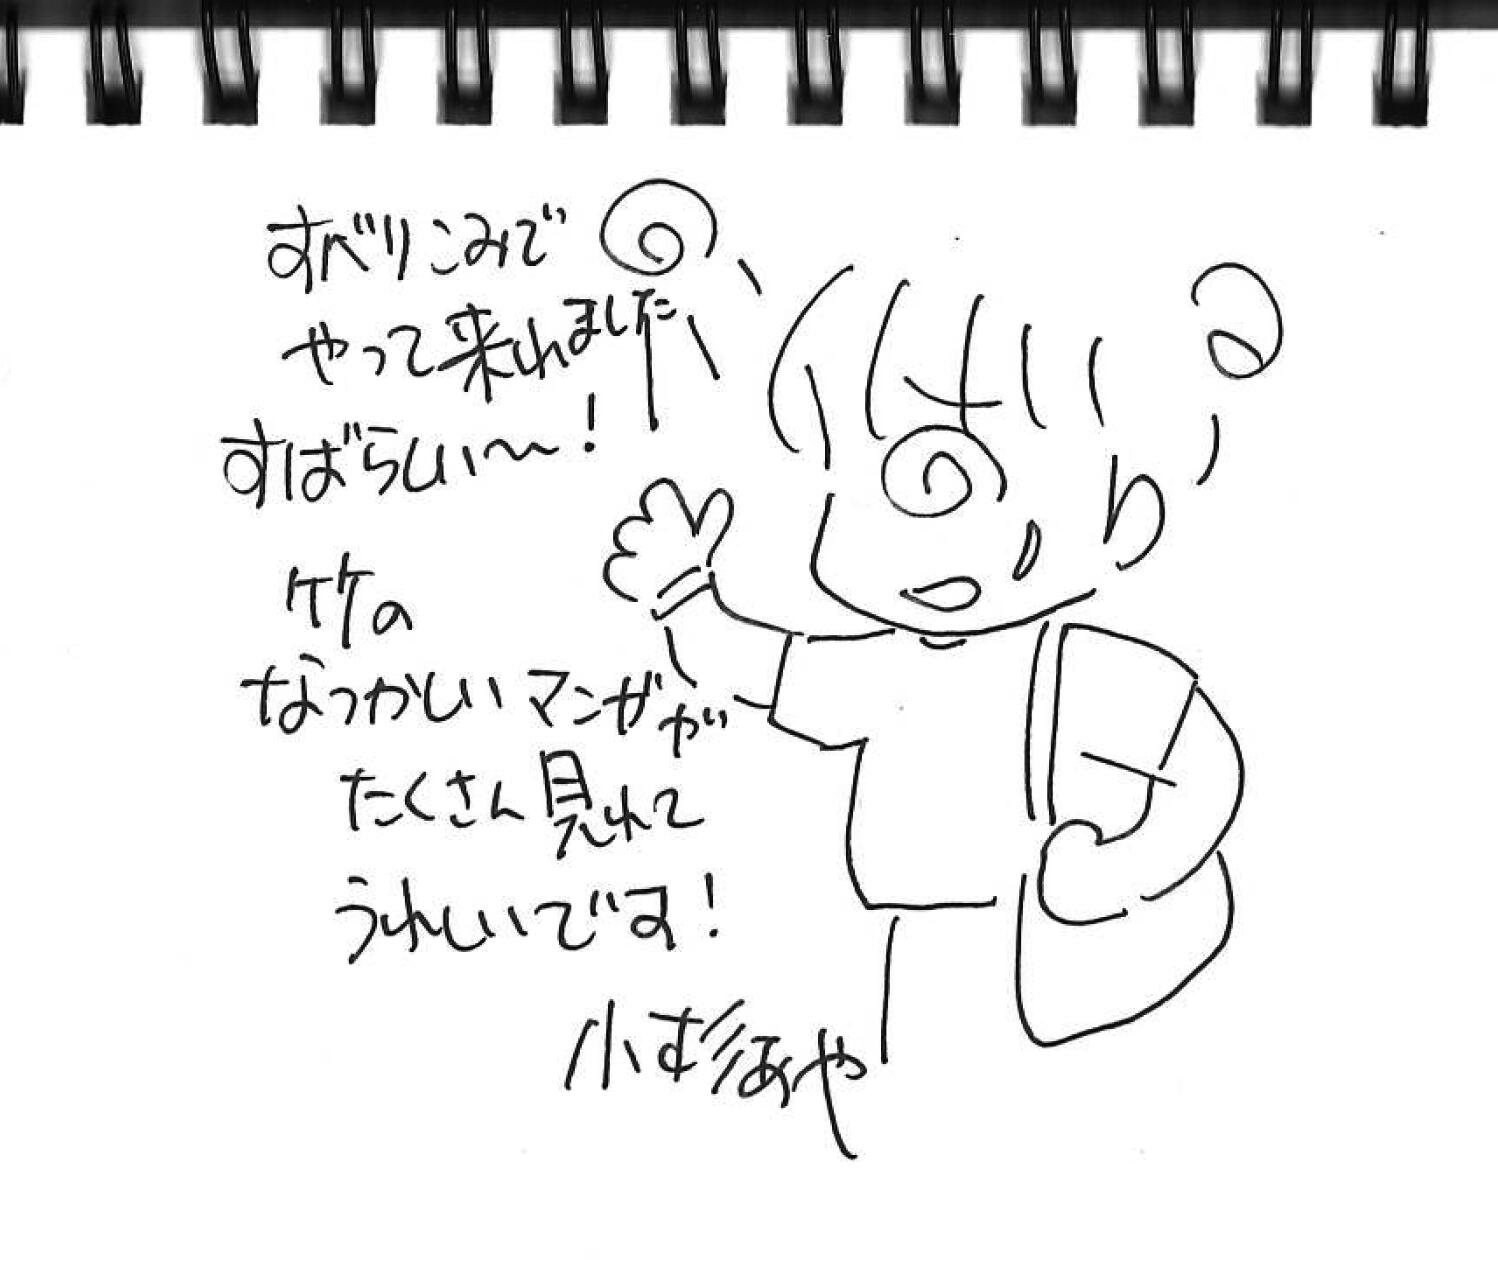 すべりこみで
やって来れました
すばらしい〜!
竹の
なつかしいマンガが
たくさん見れて
うれしいです!
小杉あや